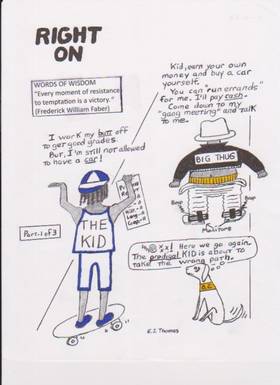 RIGHT
ON
WORDS OF WISDOM
"Every moment of resistance
to temptation is a victory."
(Frederick William Faber)
Kid, earn your own
money and buy a car
yourself.
You can "run errands"
for me. I'll pay cash.
Come down to my
"gang meeting" and talk
to me.
I work my butt off
to get good grades.
But, I'm still not allowed
to have a car!
BIG THUG
THE
KID
Part-1 of 3
Bop
Bop
Here we go again.
The prodigal KID is about to
take the wrong path.
E.J. Thomas